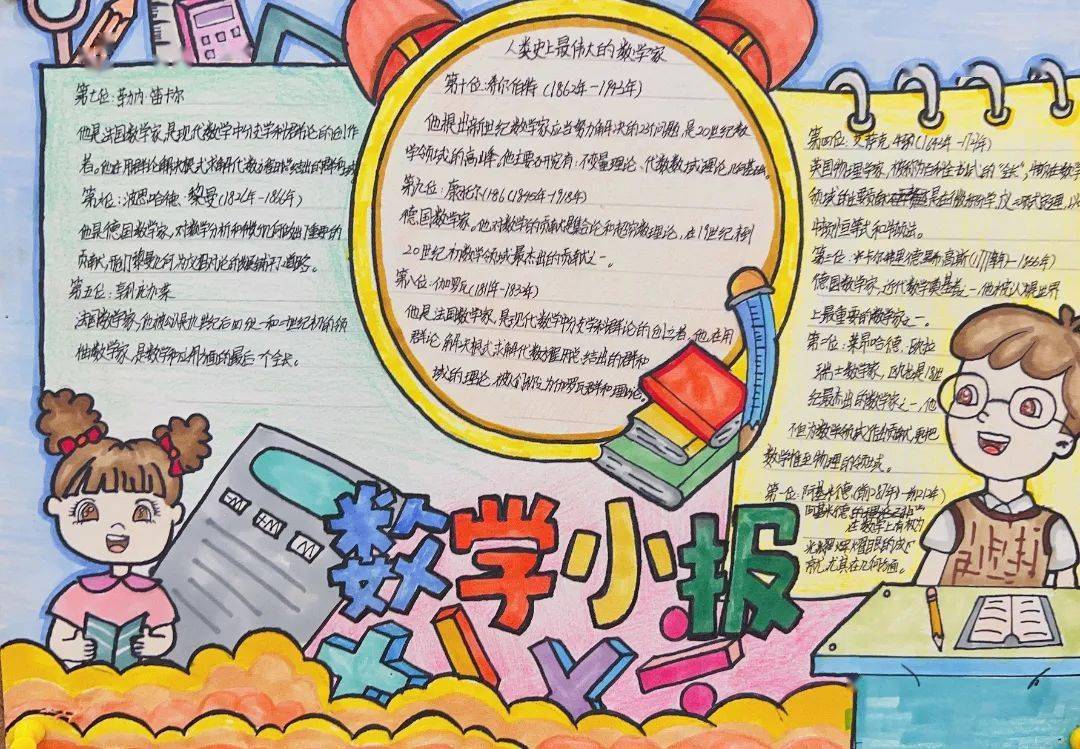 人类史上最伟大的数学家
第十位:希尔伯特(1862年-1943年)
他提出新世纪数学家应当努力解决的23个问题,是20世纪数
学领域的高峰。他主要研究有:不变量理论、代数数域理论、几何基础
第九位:康托尔
德国数学家。他对数学的贡献是集合论和超穷数理论,在19世纪末到
20世纪初数学领域最杰出的贡献之一。
第八位:伽罗瓦(1811年-1832年)
他是法国数学家,是现代数学中分支学科群论的创立者。他在用
群论,解决根式求解代数方程所总结出的群和
域的理论,被人们称之为伽罗瓦群和理论。
第七位:勒内·笛卡尔
他是法国数学家,是现代数学中分支学科群论的创作
者。他在用群论解决根式求解代数方程
第六位:波恩哈德·黎曼(1826年-1866年)
他是德国数学家,对数学分析和微分几何做出了重要的
贡献,他们黎曼几何为
第五位:
法国数学家,他被公认是19世纪后四分之一和二十世纪初的领
袖数学家,是数学和应用方面的最后一个全才。
第四位:艾萨克·牛顿
英国物理学家,被称为百科全书式的“全才”,
领域的主要贡献是在微积分学,
牛顿恒等式和牛顿法。
第三位:
德国数学家,近代数学奠基者之一,他被认为是世界
上最重要的数学家之一。
第二位:莱昂哈德·欧拉
瑞士数学家,欧拉是18世
纪最杰出的数学家之一,他
不但为数学领域作出贡献,更把
数学推至物理的领域。
第一位:阿基米德(前287年-前212年)
阿基米德
在数学上有极为
光耀辉煌耀眼的成
就,尤其在几何方面。
数学小报